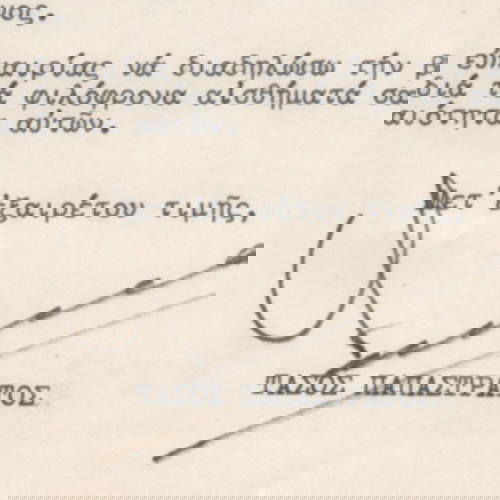 νος.
καιρίας νά διαδηλώσω τήν β
τά φιλόφρονα αἰσθήματά σας διά
αὐτῶν.
Μετ' ἐξαιρέτου τιμῆς,
ΤΑΣΟΣ ΠΑΠΑΣΤΡΑΤΟΣ